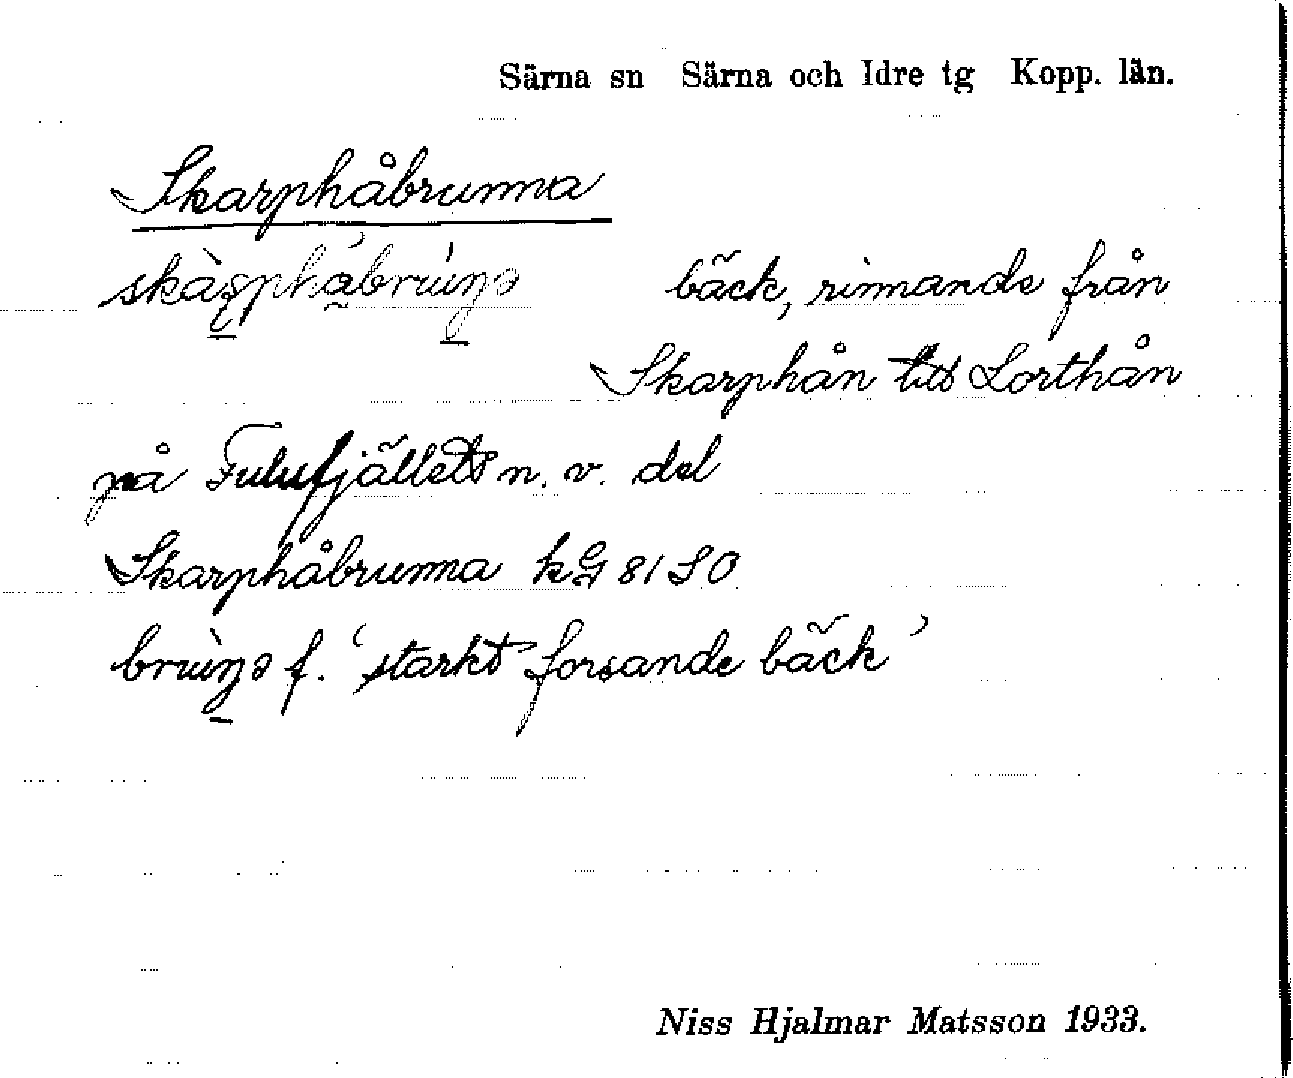 Särna sn Särna och Idre tg Kopp. län.
Skarphåbrunna
bäck, rinnande från
Skarphån till Lorthån
på Fulufjällets n. v. del
Skarphåbrunna kG 81 SO
f. 'starkt forsande bäck'
Niss Hjalmar Matsson 1933.